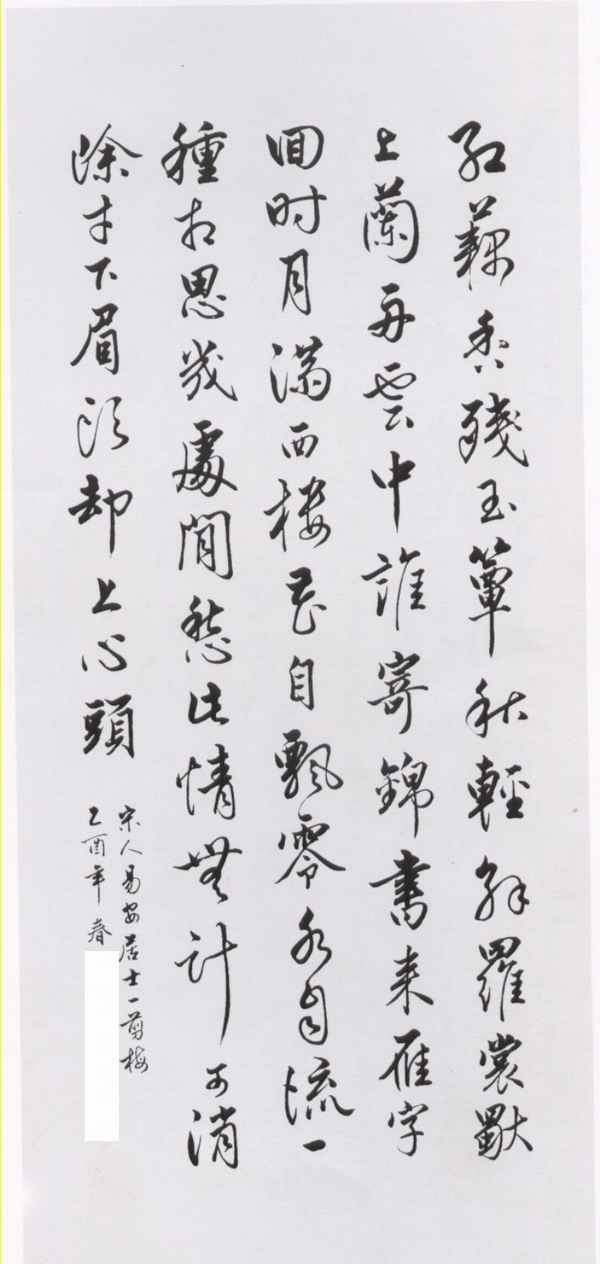 紅藕香残玉簟秋輕解羅裳獨
上蘭舟雲中誰寄錦書来雁字
回时月满西楼花自飄零水自流一
種相思幾處閒愁此情無計可消
除才下眉头却上心頭
宋人易安居士一剪梅
乙酉年春